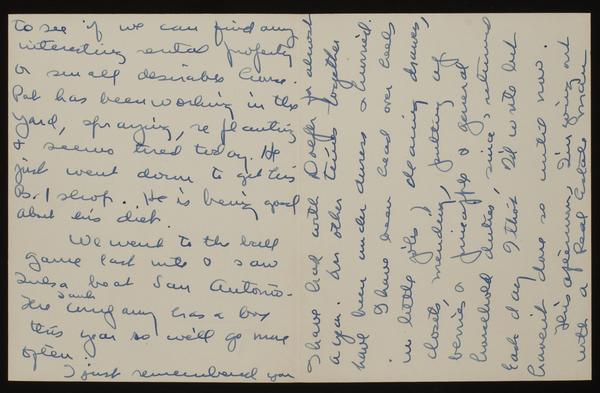 I have had with for almost
a year. Our other times together
have been under duress & hurried.
I have been head over heels
in little jobs, cleaning drawers,
closets, mending, putting up
berries & pineapple & general
household duties, since I returned
Each day I think I'll write but
haven't done so until now.
This afternoon, I'm going out
with a Real Estate man
to see if we can find any
interesting rental property
or small desirable home.
Pat has been working in the
yard, spraying, replanting
& seems tired today. He
just went down to get his
B-1 shop. He is being good
about his diet.
We went to the ball
game last nite & saw
Tulsa beat San Antonio.
The Company has a box
this year so we'll go more
often.
I just remembered you